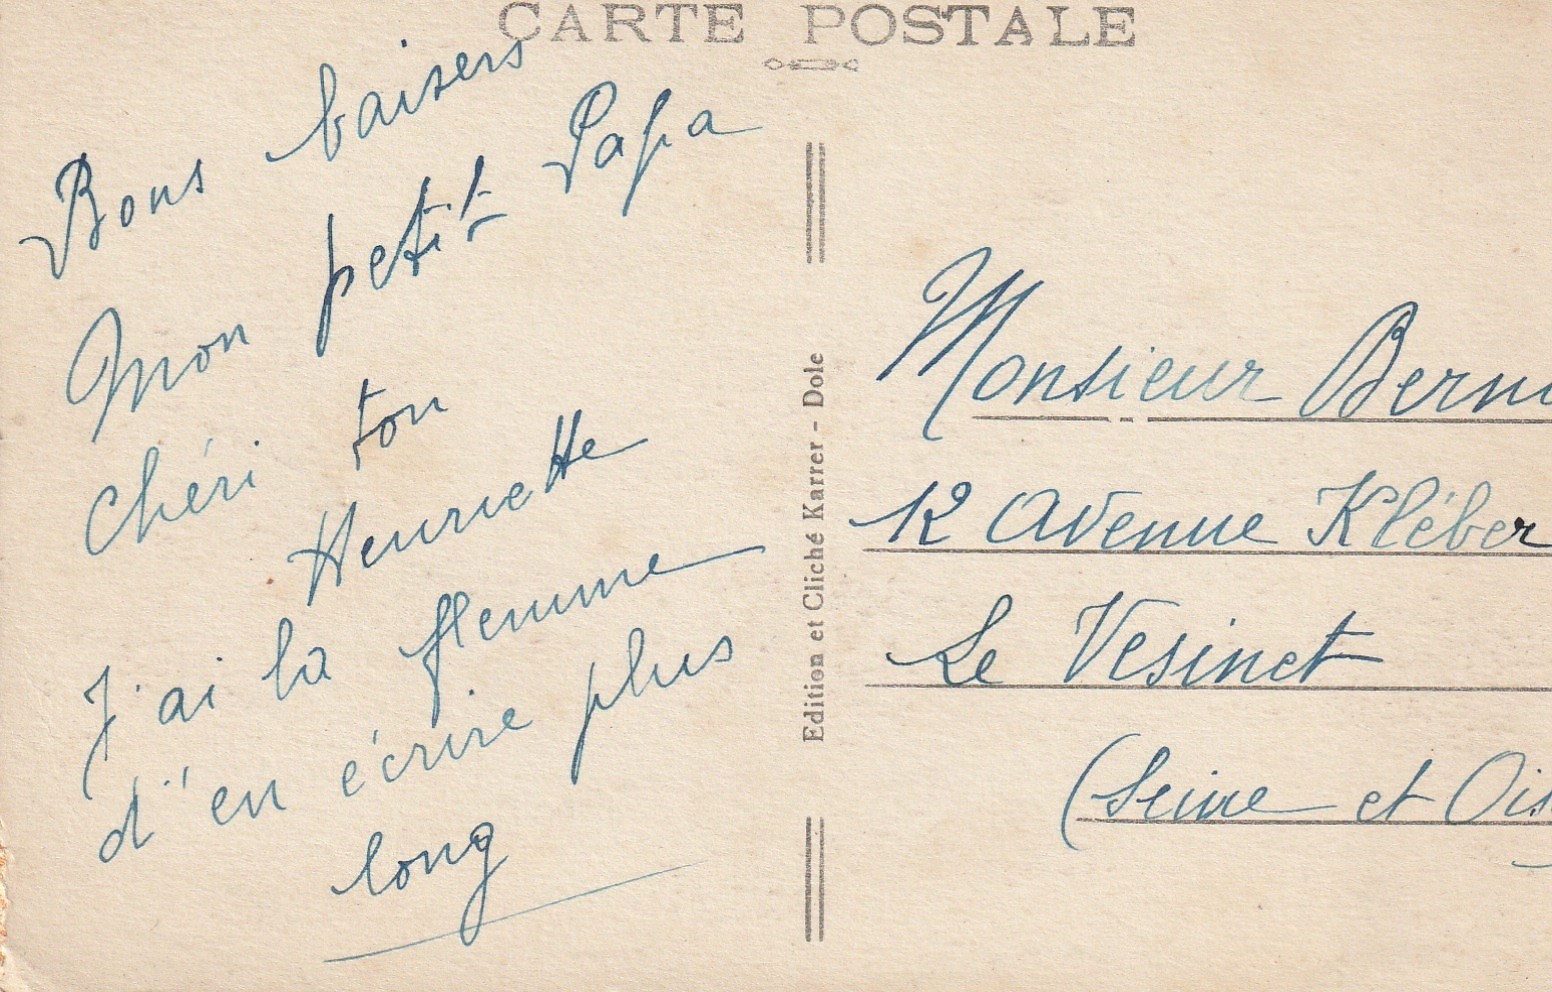 CARTE POSTALE
Bons baisers
mon petit Papa
chéri ton
Henriette
J'ai la flemme
d'en écrire plus
long
Edition et Cliché Karrer - Dole
Monsieur
12 Avenue Kléber
Le Vesinet
(Seine et